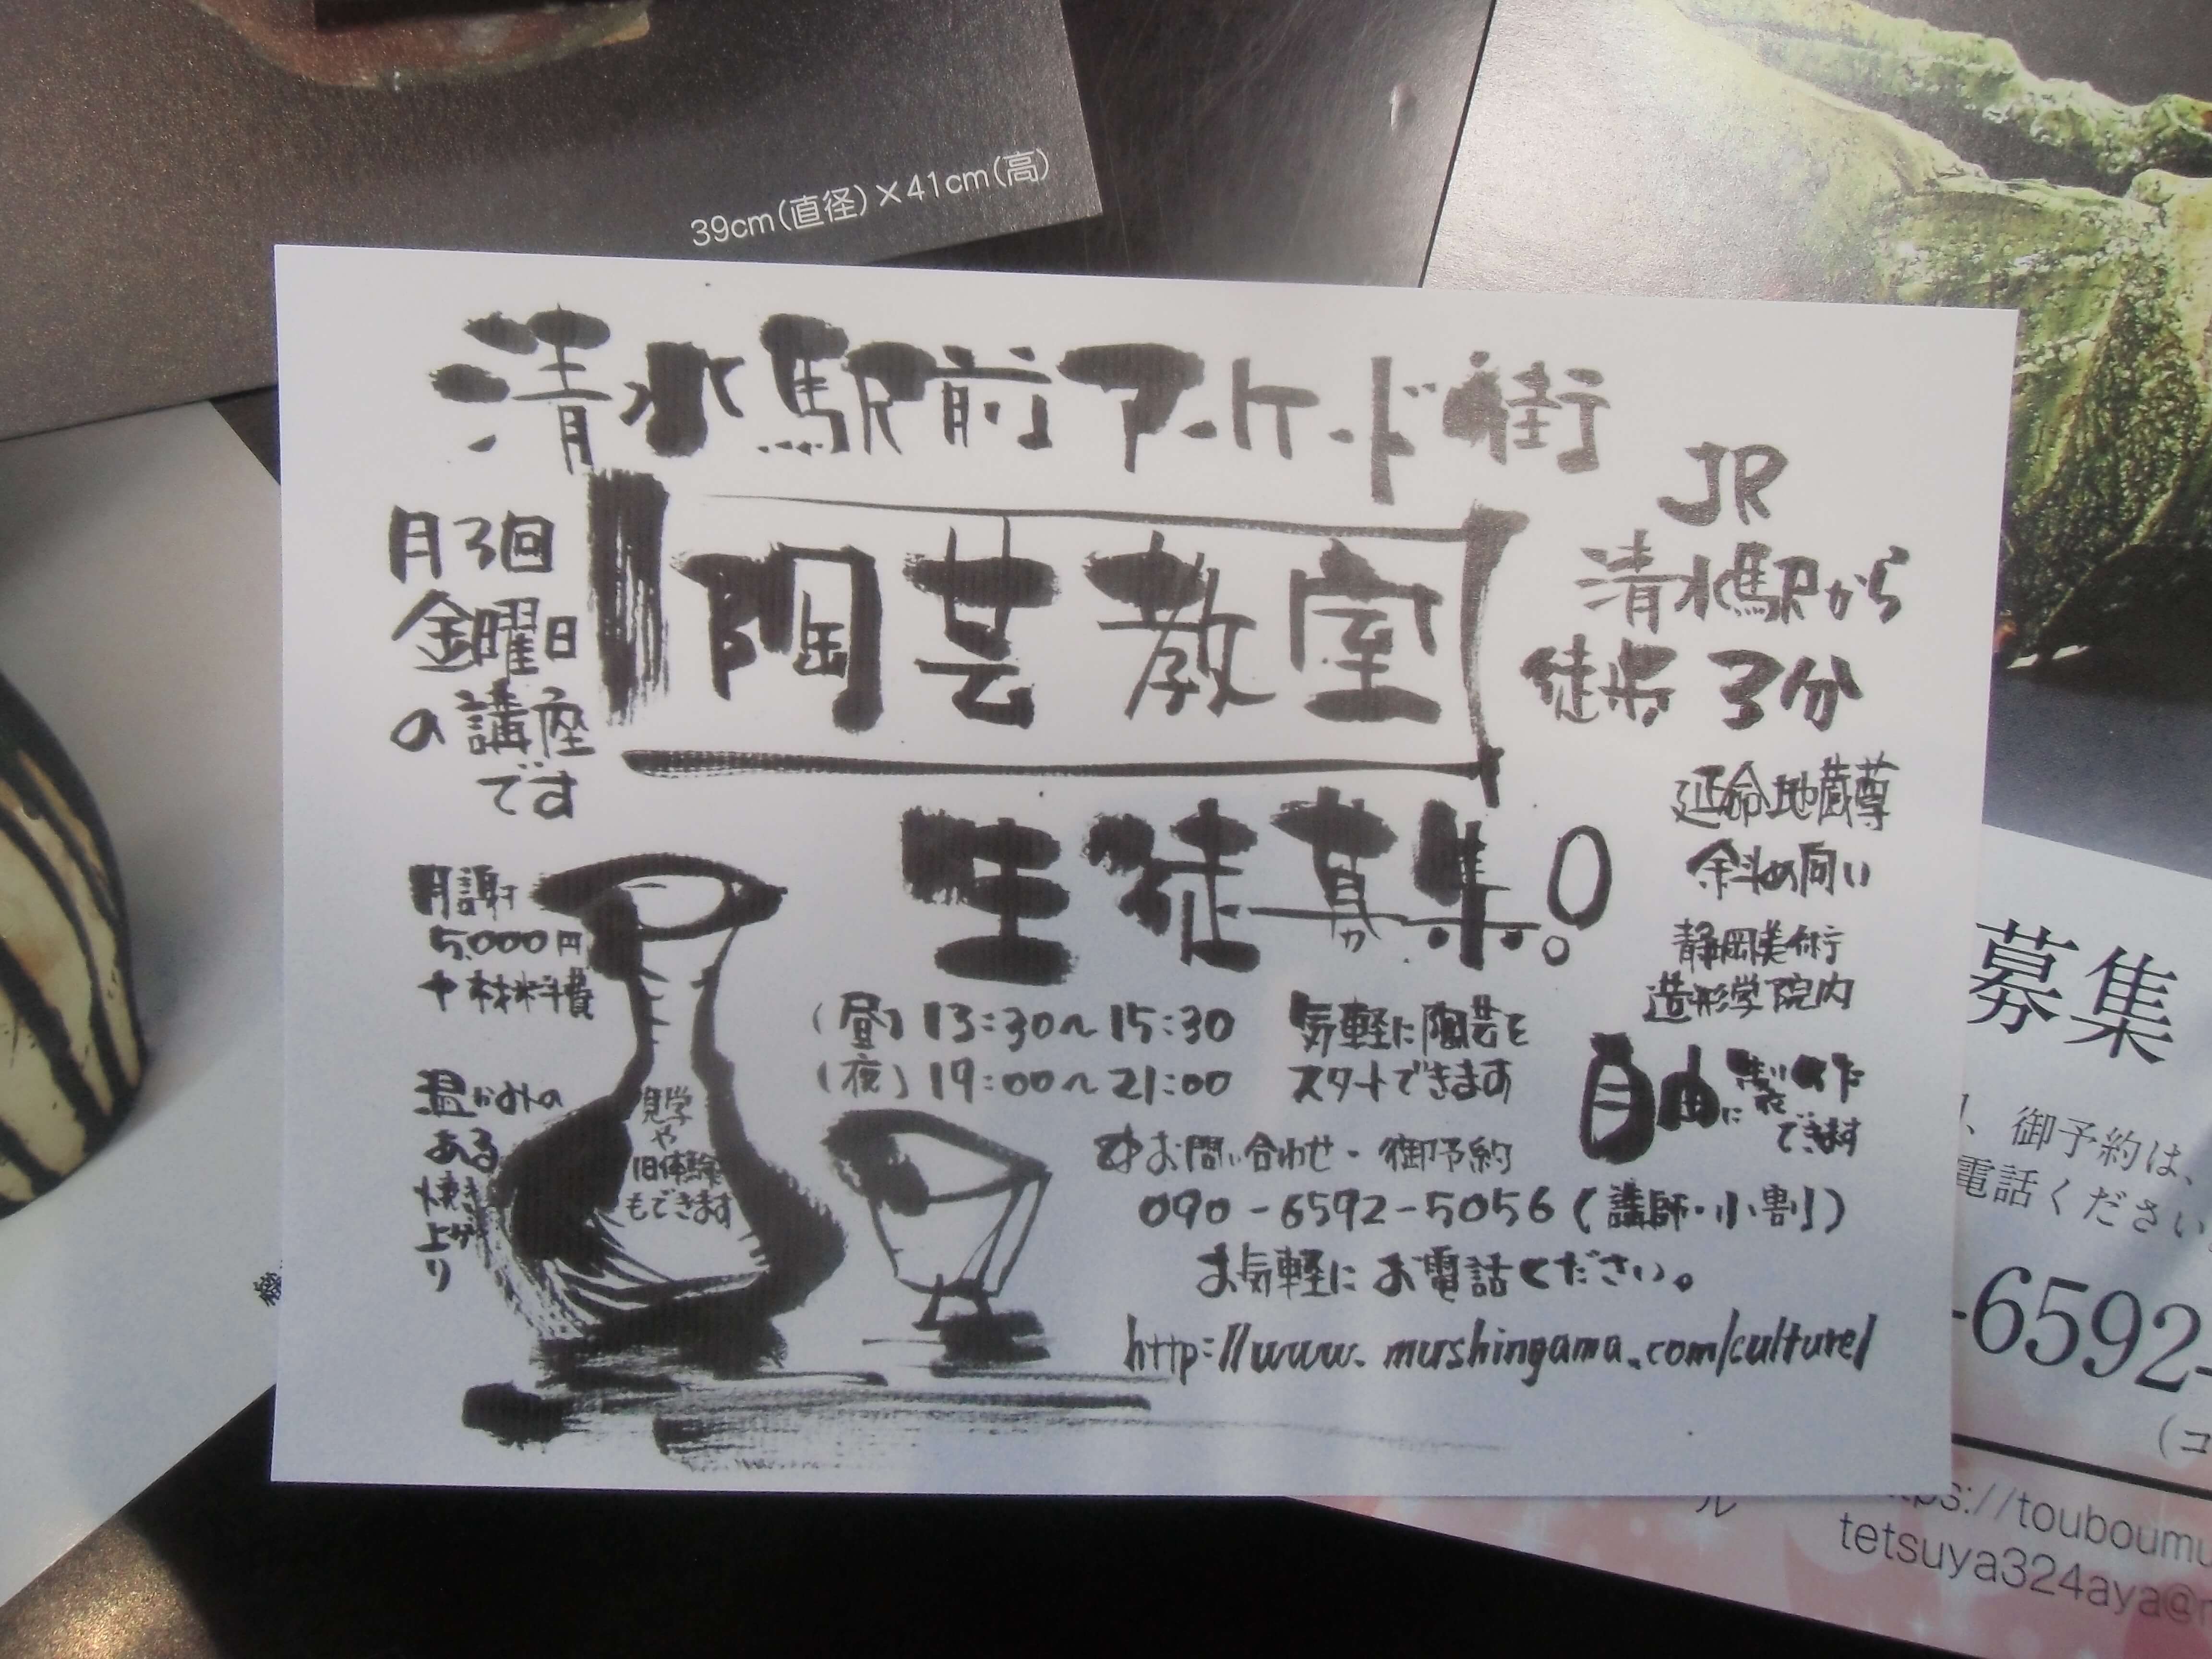 39cm(直径)×41cm(高)
清水駅前アーケード街
陶芸教室
生徒募集!
月3回
金曜日
の講座
です
JR
清水駅から
徒歩3分
延命地蔵尊
斜め向い
静岡美術
造形学院内
月謝
5,000円
+材料費
(昼)13:30〜15:30
(夜)19:00〜21:00
気軽に陶芸を
スタートできます
自由に製作
できます
温かみの
ある
焼き
上がり
見学
や
1日体験
もできます
お問い合わせ・御予約
090-6592-5056(講師・小割)
お気軽にお電話ください。
http://www.mushingama.com/culture/
募集
御予約は、
電話ください
-6592-
(コ
ル
ps://touboumu
tetsuya324aya@